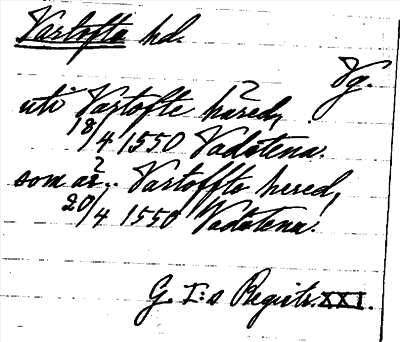 Vartofta hd.
Vg.
uti Vartofte häred,
18/4 1550 Vadstena.
som är.. Vartoffto hered,
20/4 1550 Vadstena.
G. I:s Registr. XXI.